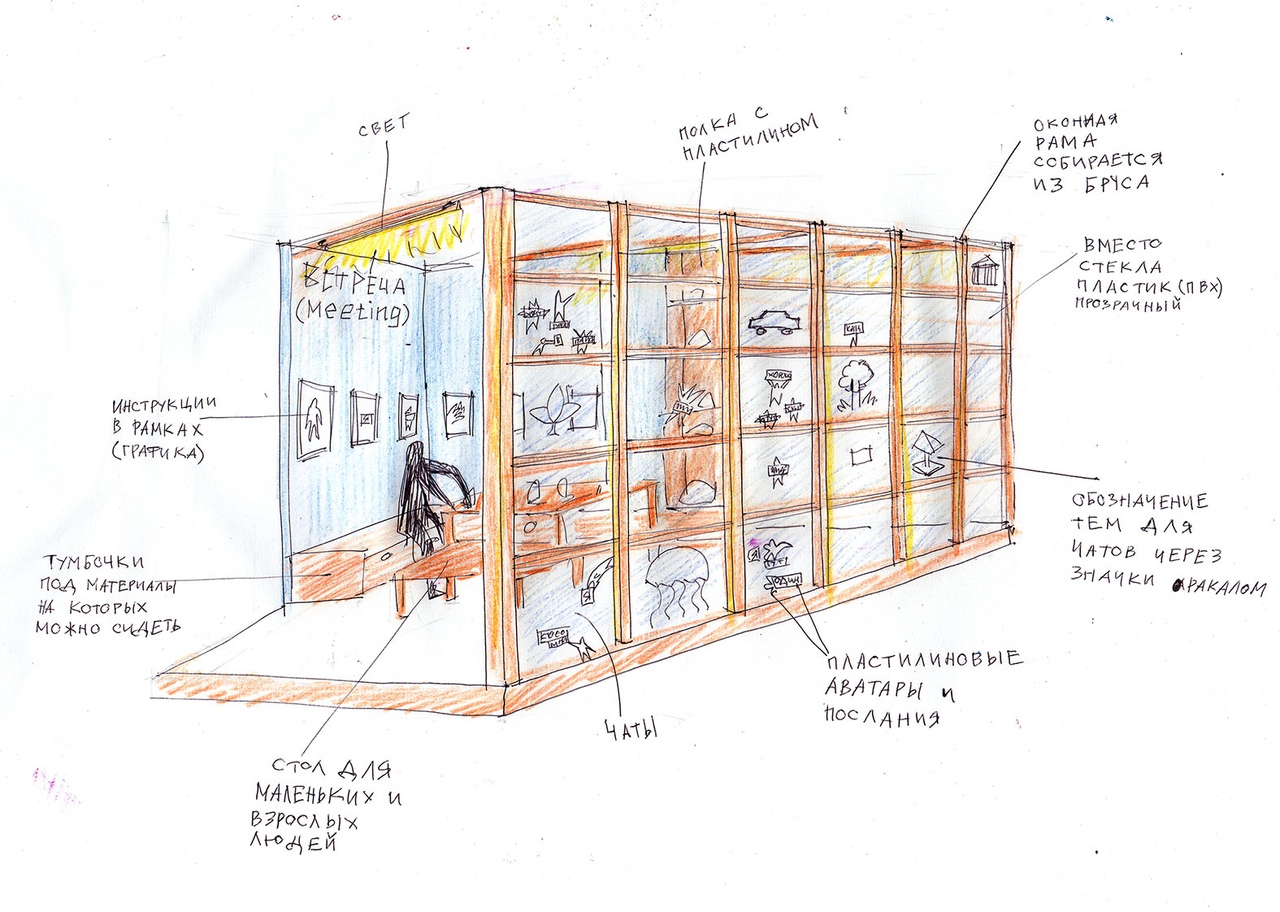 СВЕТ
ПОЛКА С
ПЛАСТИЛИНОМ
ОКОННАЯ
РАМА
СОБИРАЕТСЯ
ИЗ БРУСА
ВМЕСТО
СТЕКЛА
ПЛАСТИК (ПВХ)
ПРОЗРАЧНЫЙ
ВСТРЕЧА
(Meeting)
ИНСТРУКЦИИ
В РАМКАХ
(ГРАФИКА)
ТУМБОЧКИ
ПОД МАТЕРИАЛЫ
НА КОТОРЫХ
МОЖНО СИДЕТЬ
ОБОЗНАЧЕНИЕ
ТЕМ ДЛЯ
ЧАТОВ ЧЕРЕЗ
ЗНАЧКИ ОРАКАЛОМ
ОДИН
Я
ПЛАСТИЛИНОВЫЕ
АВАТАРЫ И
ПОСЛАНИЯ
ЧАТЫ
СТОЛ ДЛЯ
МАЛЕНЬКИХ И
ВЗРОСЛЫХ
ЛЮДЕЙ